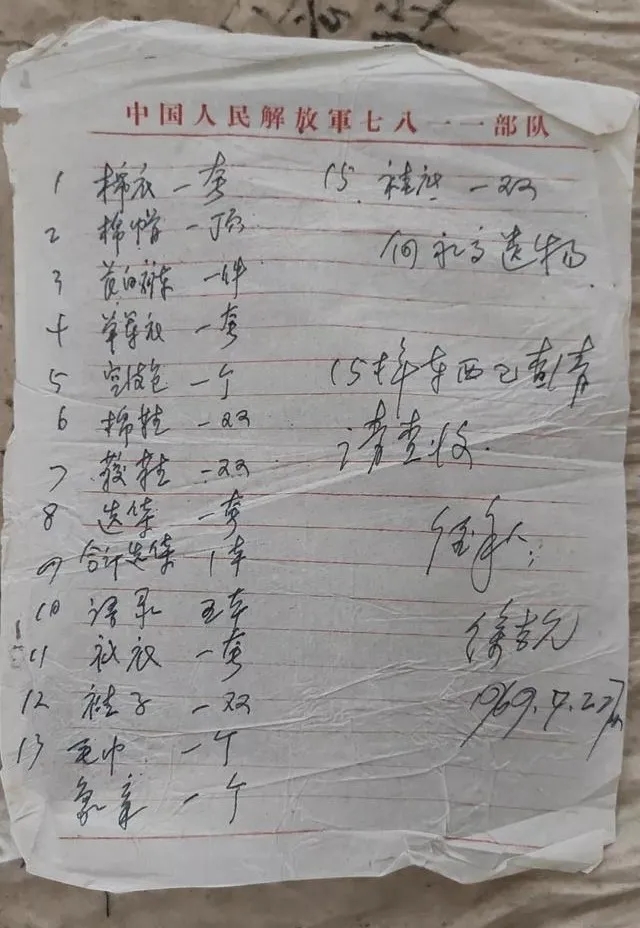 中国人民解放軍七八一一部队
1 棉衣 一套
2 棉帽 一顶
3 一件
4 单军衣 一套
5 一个
6 棉鞋 一双
7 胶鞋 一双
8 选集 一套
9 合订选集 1本
10 语录 五本
11 衬衣 一套
12 袜子 一双
13 毛巾 一个
象章 一个
15 袜底 一双
何 遗物
15样东西已查清
请查收
经手人:
徐吉元